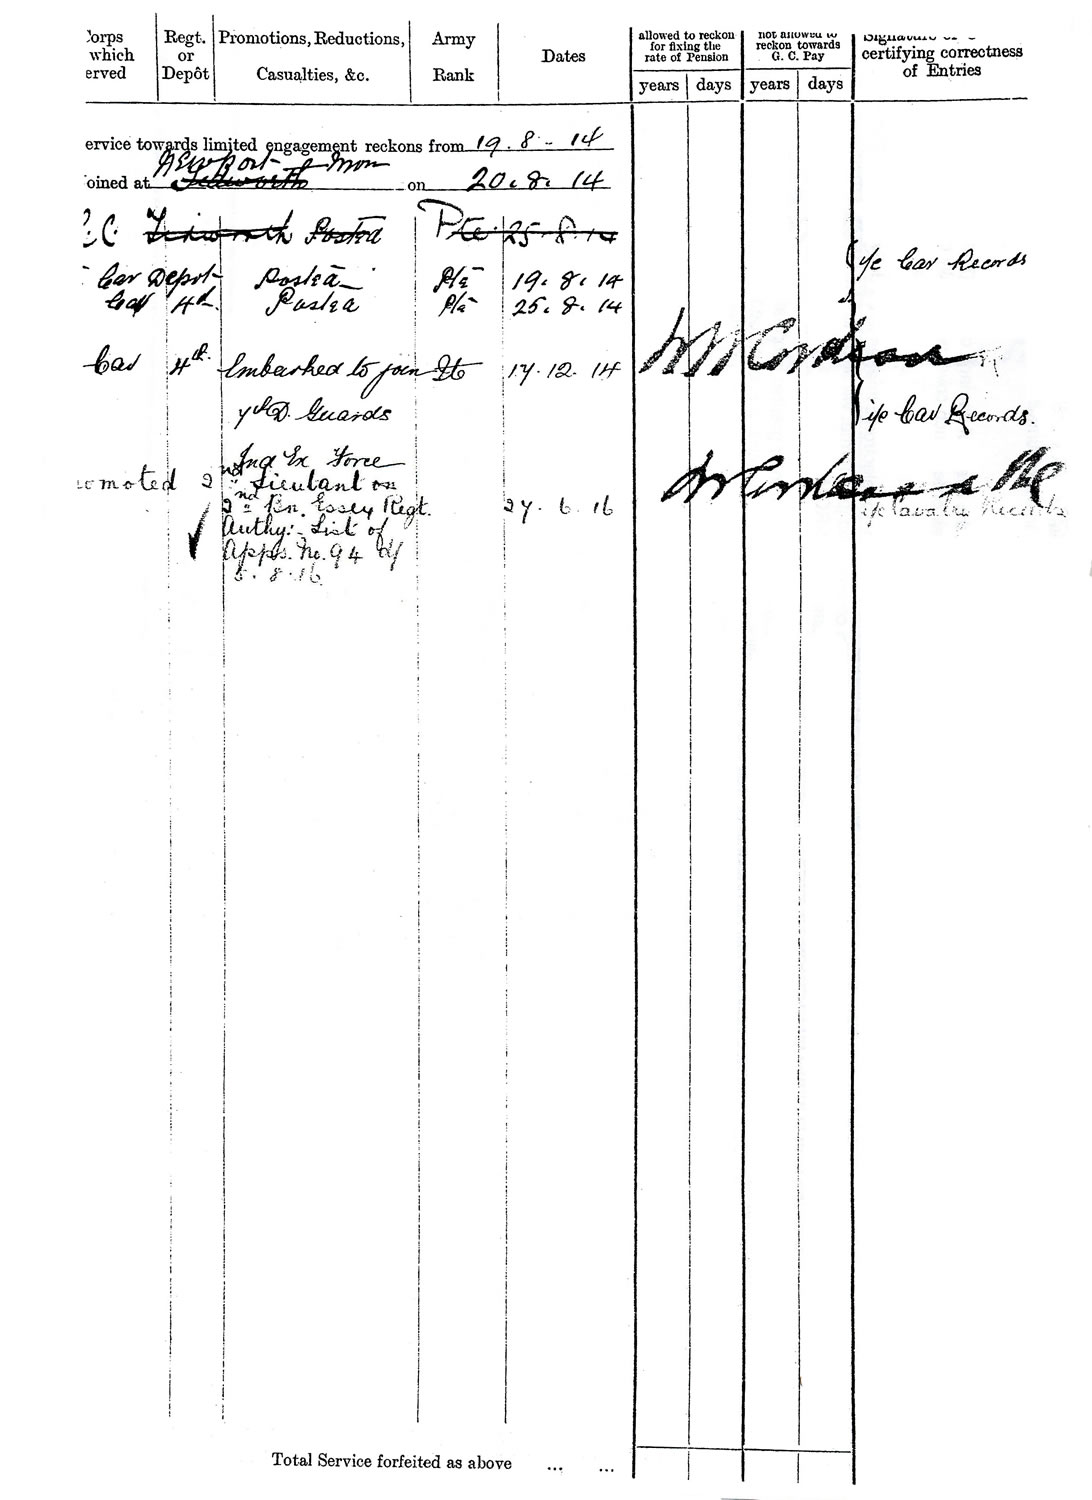 Corps which erved
Regt. or Depôt
Promotions, Reductions, Casualties, &c.
Army Rank
Dates
allowed to reckon for fixing the rate of Pension
not allowed to reckon towards G. C. Pay
certifying correctness of Entries
years days years days
ervice towards limited engagement reckons from 19. 8 - 14
Newport Mon
oined at Tidworth on 20. 8. 14
C Tidworth Posted Pte 25. 8. 14
i/c Cav Records
Cav Depot Posted Pte 19. 8. 14
Cav 4th Posted Pte 25. 8. 14
Cav 4th Embarked to join Pte 17. 12. 14
7th D. Guards
i/c Cav Records.
Ex Force
omoted 2nd Lieutant on
2nd Bn. Essex Regt. 27. 6. 16
i/c Cavalry Records
Authy:- List of
Appts. No. 94 d/
5. 8. 16
Total Service forfeited as above ... ...